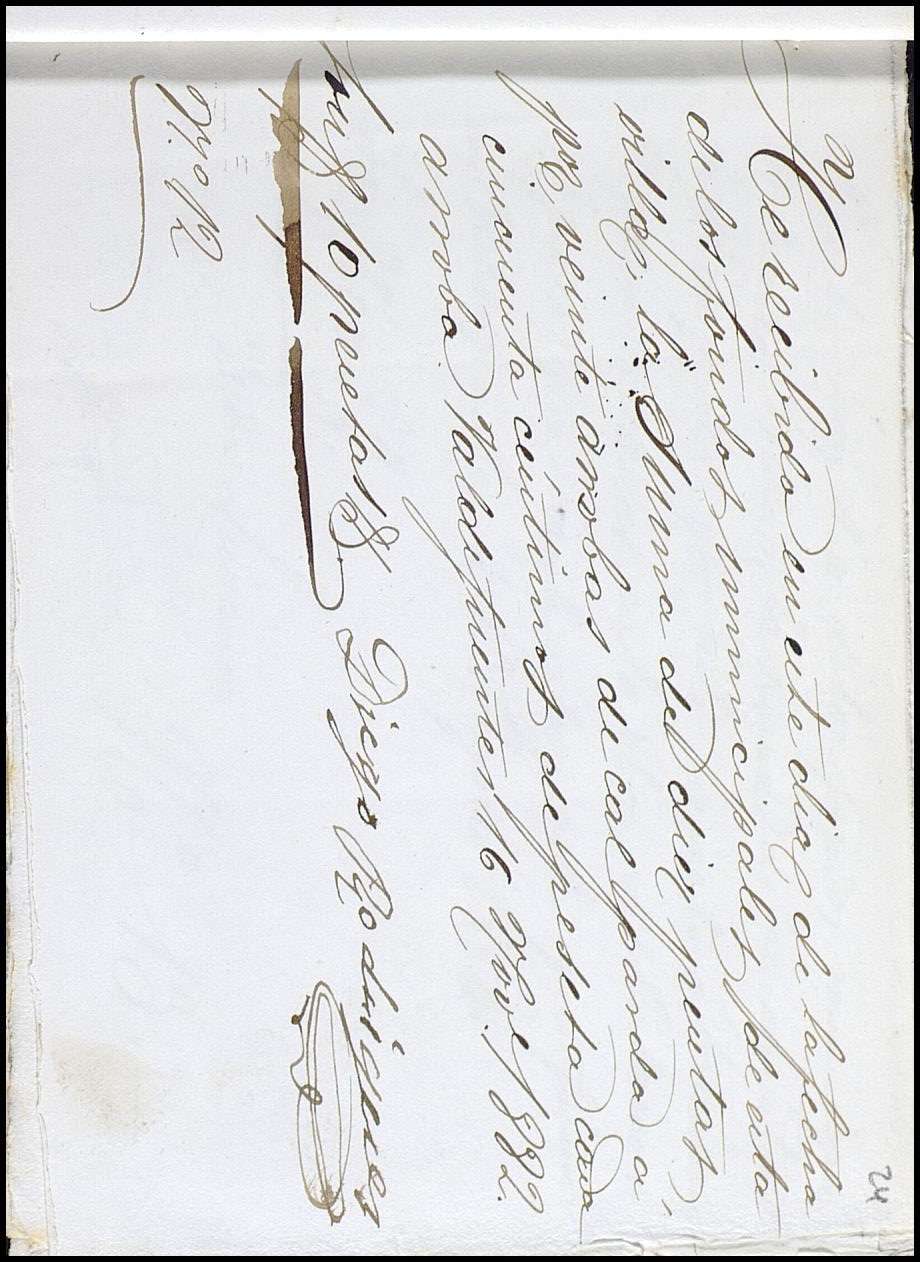 24
He recibido en este dia de la fecha
de los fondos municipales de esta
villa, la suma de diez pesetas,
por veinte arrobas de cal parda a
cincuenta céntimos de peseta cada
arroba. Valdefuentes 16 9bre/1882.
Son $ 10 pesetas $ Diego Rodrigues
Nº 12